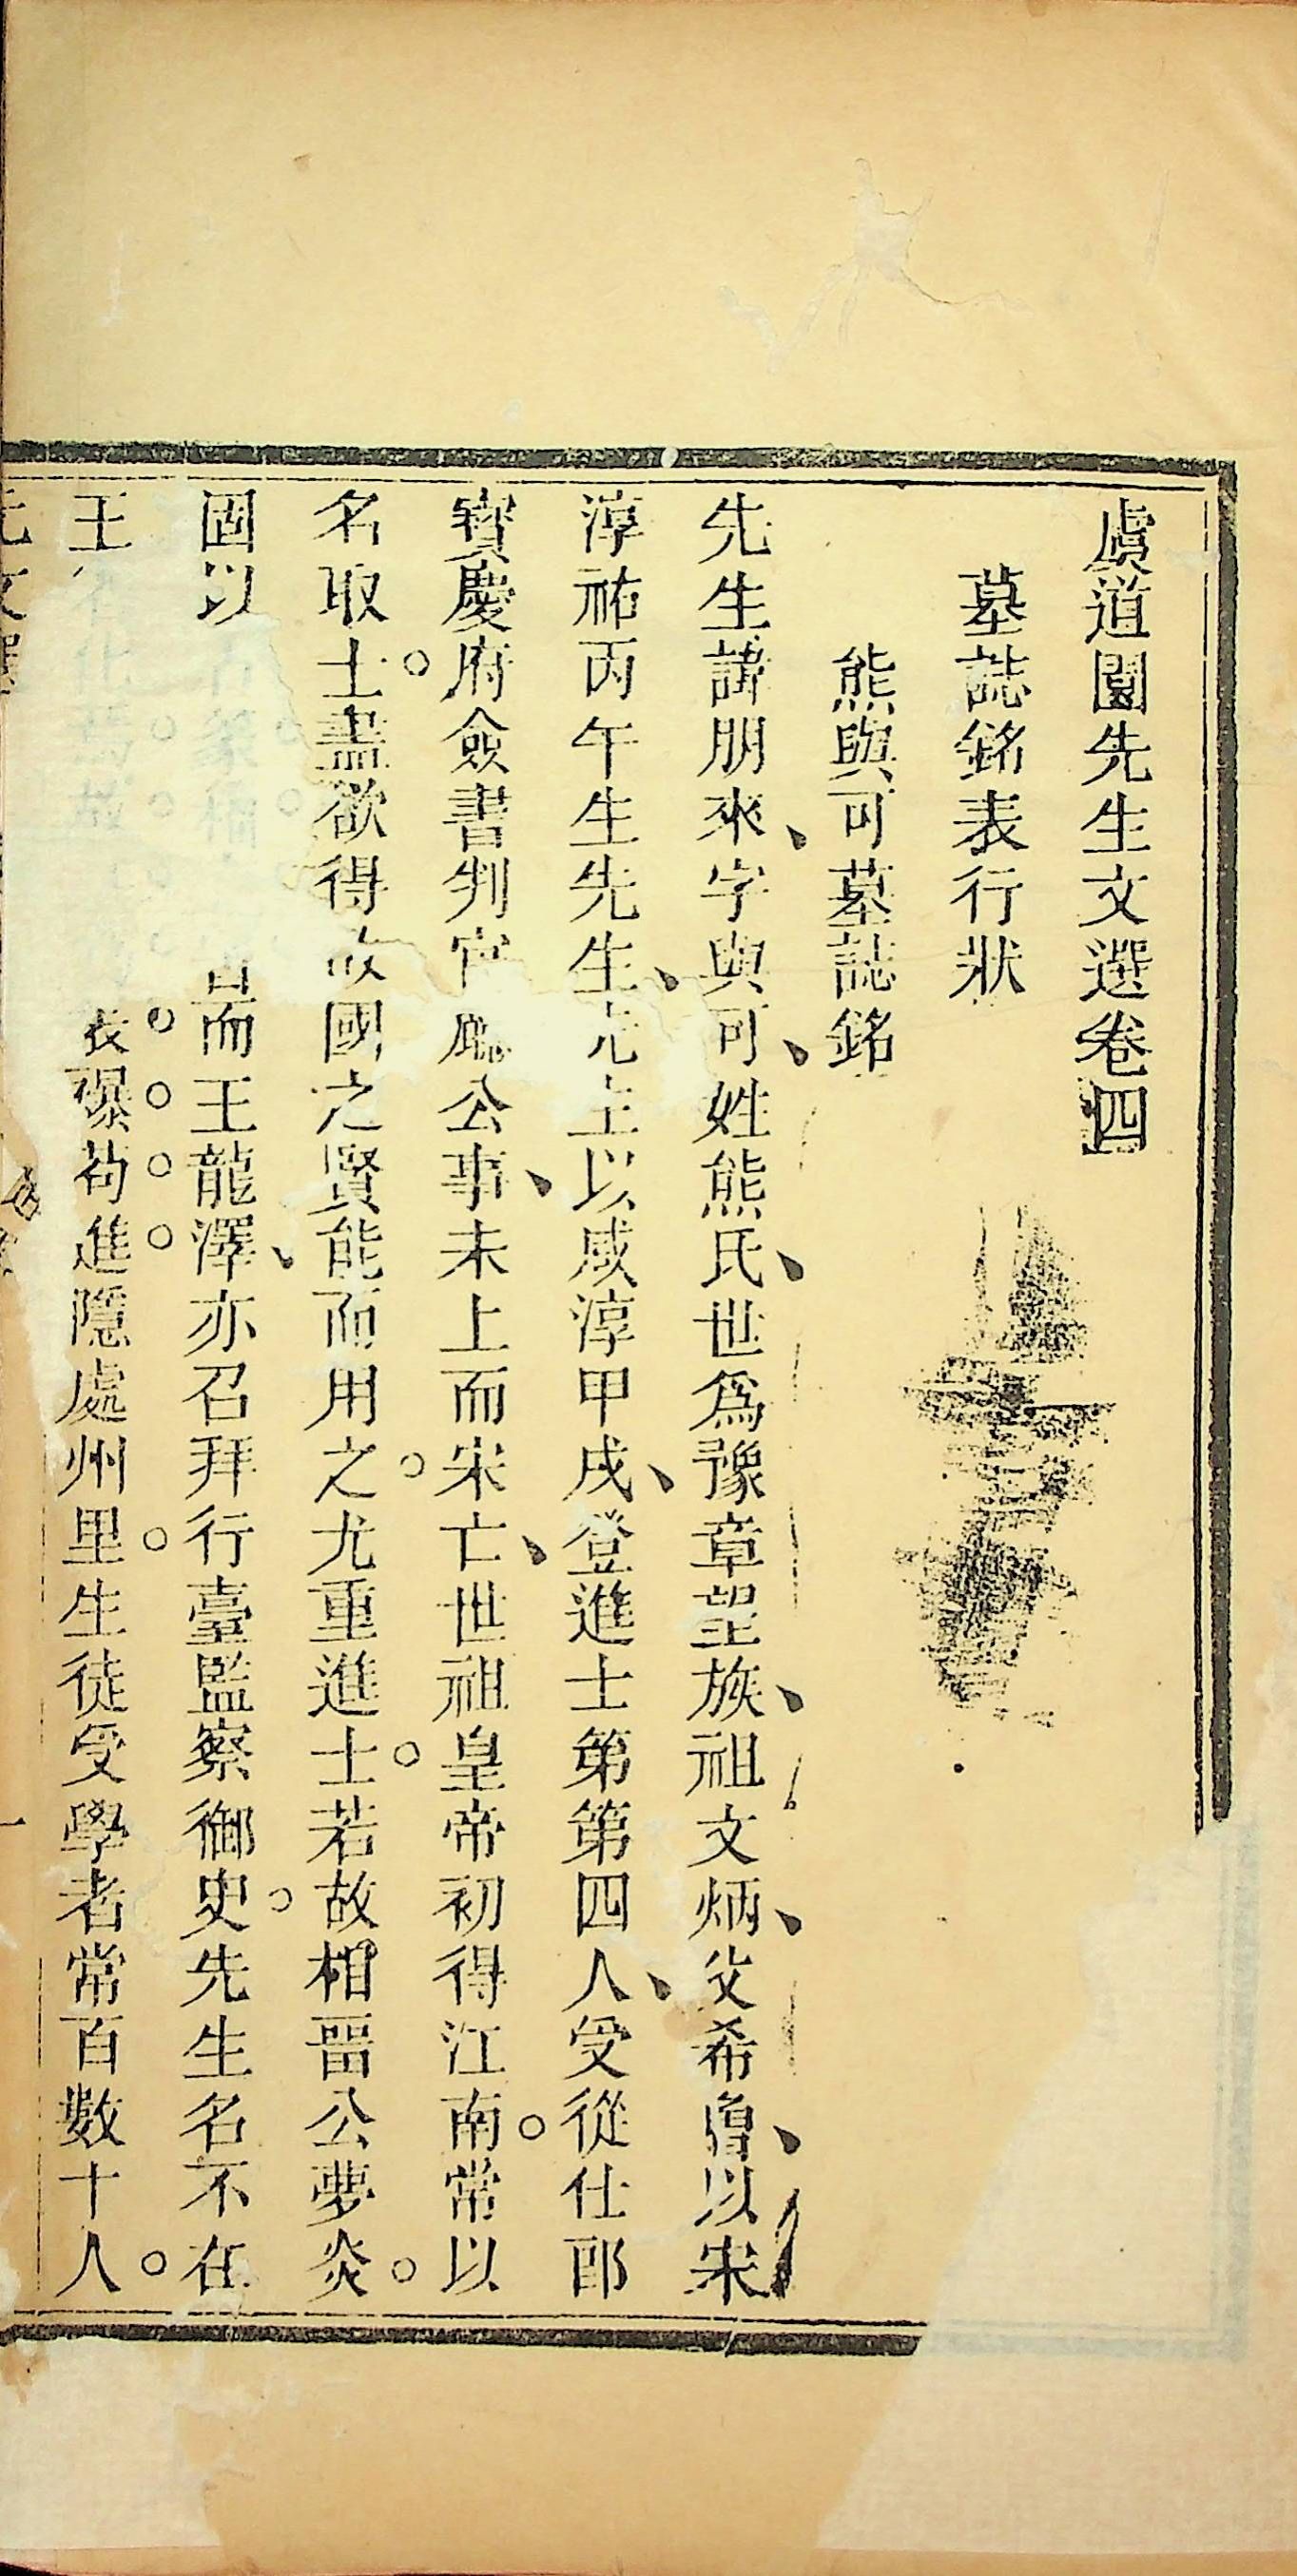 虞道園先生文選卷四
墓誌銘表行狀
熊與可墓誌銘
先生諱朋來、字與可、姓熊氏、世爲豫章望族、祖文炳、父希曾、以宋
淳祐丙午生先生、先生以咸淳甲戌、登進士第第四人、受從仕郎
寶慶府僉書判官廳公事、未上而宋亡、世祖皇帝初得江南。常以
名取士。盡欲得故國之賢能而用之。尤重進士。若故相畱公夢炎。
固以 而王龍澤、亦召拜行臺監察御史。先生名不在
王 表襮。苟。進。隱處州里。生徒受學者常百數十人。
元文選
一